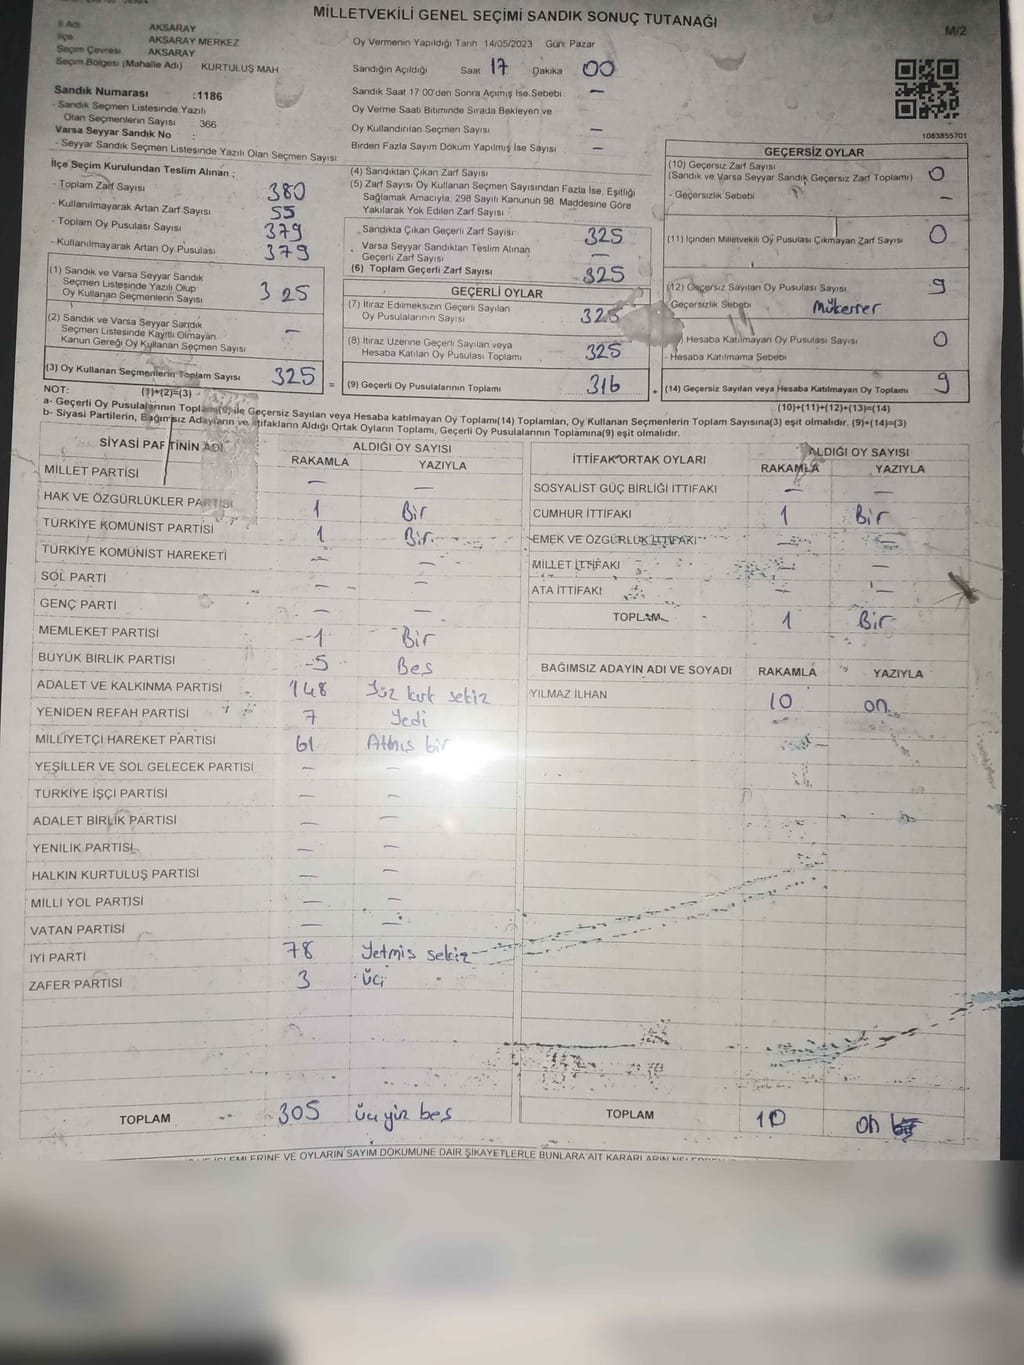 MİLLETVEKİLİ GENEL SEÇİMİ SANDIK SONUÇ TUTANAĞI
M/2
İl Adı AKSARAY
İlçe AKSARAY MERKEZ
Seçim Çevresi AKSARAY
Seçim Bölgesi (Mahalle Adı) KURTULUŞ MAH
Sandık Numarası :1186
- Sandık Seçmen Listesinde Yazılı
Olan Seçmenlerin Sayısı 366
Varsa Seyyar Sandık No :
- Seyyar Sandık Seçmen Listesinde Yazılı Olan Seçmen Sayısı
Oy Vermenin Yapıldığı Tarih 14/05/2023 Gün: Pazar
Sandığın Açıldığı Saat 17 Dakika 00
Sandık Saat 17:00'den Sonra Açılmış İse Sebebi —
Oy Verme Saati Bitiminde Sırada Bekleyen ve
Oy Kullandırılan Seçmen Sayısı —
Birden Fazla Sayım Döküm Yapılmış İse Sayısı —
1083855701
İlçe Seçim Kurulundan Teslim Alınan ;
- Toplam Zarf Sayısı 380
- Kullanılmayarak Artan Zarf Sayısı 55
- Toplam Oy Pusulası Sayısı 379
- Kullanılmayarak Artan Oy Pusulası 379
(1) Sandık ve Varsa Seyyar Sandık
Seçmen Listesinde Yazılı Olup
Oy Kullanan Seçmenlerin Sayısı 325
(2) Sandık ve Varsa Seyyar Sandık
Seçmen Listesinde Kayıtlı Olmayan
Kanun Gereği Oy Kullanan Seçmen Sayısı —
(3) Oy Kullanan Seçmenlerin Toplam Sayısı 325 =
(1)+(2)=(3)
(4) Sandıktan Çıkan Zarf Sayısı
(5) Zarf Sayısı Oy Kullanan Seçmen Sayısından Fazla İse, Eşitliği
Sağlamak Amacıyla, 298 Sayılı Kanunun 98. Maddesine Göre
Yakılarak Yok Edilen Zarf Sayısı
Sandıkta Çıkan Geçerli Zarf Sayısı 325
Varsa Seyyar Sandıktan Teslim Alınan
Geçerli Zarf Sayısı —
(6) Toplam Geçerli Zarf Sayısı 325
GEÇERLİ OYLAR
(7) İtiraz Edilmeksizin Geçerli Sayılan
Oy Pusulalarının Sayısı 325
(8) İtiraz Üzerine Geçerli Sayılan veya
Hesaba Katılan Oy Pusulası Toplamı 325
(9) Geçerli Oy Pusulalarının Toplamı 316 +
GEÇERSİZ OYLAR
(10) Geçersiz Zarf Sayısı
(Sandık ve Varsa Seyyar Sandık Geçersiz Zarf Toplamı) 0
- Geçersizlik Sebebi —
(11) İçinden Milletvekili Oy Pusulası Çıkmayan Zarf Sayısı 0
(12) Geçersiz Sayılan Oy Pusulası Sayısı 9
Geçersizlik Sebebi Mükerrer
Hesaba Katılmayan Oy Pusulası Sayısı 0
- Hesaba Katılmama Sebebi
(14) Geçersiz Sayılan veya Hesaba Katılmayan Oy Toplamı 9
(10)+(11)+(12)+(13)=(14)
NOT:
a- Geçerli Oy Pusulalarının Toplamı(9) ile Geçersiz Sayılan veya Hesaba katılmayan Oy Toplamı(14) Toplamları, Oy Kullanan Seçmenlerin Toplam Sayısına(3) eşit olmalıdır. (9)+(14)=(3)
b- Siyasi Partilerin, Bağımsız Adayların ve İttifakların Aldığı Ortak Oyların Toplamı, Geçerli Oy Pusulalarının Toplamına(9) eşit olmalıdır.
SİYASİ PARTİNİN ADI ALDIĞI OY SAYISI
RAKAMLA YAZIYLA
MİLLET PARTİSİ — —
HAK VE ÖZGÜRLÜKLER PARTİSİ 1 Bir
TÜRKİYE KOMÜNİST PARTİSİ 1 Bir
TÜRKİYE KOMÜNİST HAREKETİ — —
SOL PARTİ — —
GENÇ PARTİ — —
MEMLEKET PARTİSİ 1 Bir
BÜYÜK BİRLİK PARTİSİ 5 Bes
ADALET VE KALKINMA PARTİSİ 148 Yüz kırk sekiz
YENİDEN REFAH PARTİSİ 7 Yedi
MİLLİYETÇİ HAREKET PARTİSİ 61 Altmıs bir
YEŞİLLER VE SOL GELECEK PARTİSİ — —
TÜRKİYE İŞÇİ PARTİSİ — —
ADALET BİRLİK PARTİSİ — —
YENİLİK PARTİSİ — —
HALKIN KURTULUŞ PARTİSİ — —
MİLLİ YOL PARTİSİ — —
VATAN PARTİSİ — —
İYİ PARTİ 78 Yetmis sekiz
ZAFER PARTİSİ 3 üç
TOPLAM 305 üç yüz bes
İTTİFAK ORTAK OYLARI ALDIĞI OY SAYISI
RAKAMLA YAZIYLA
SOSYALİST GÜÇ BİRLİĞİ İTTİFAKI — —
CUMHUR İTTİFAKI 1 Bir
EMEK VE ÖZGÜRLÜK İTTİFAKI — —
MİLLET İTTİFAKI — —
ATA İTTİFAKI — —
TOPLAM 1 Bir
BAĞIMSIZ ADAYIN ADI VE SOYADI RAKAMLA YAZIYLA
YILMAZ İLHAN 10 on
TOPLAM 10 on